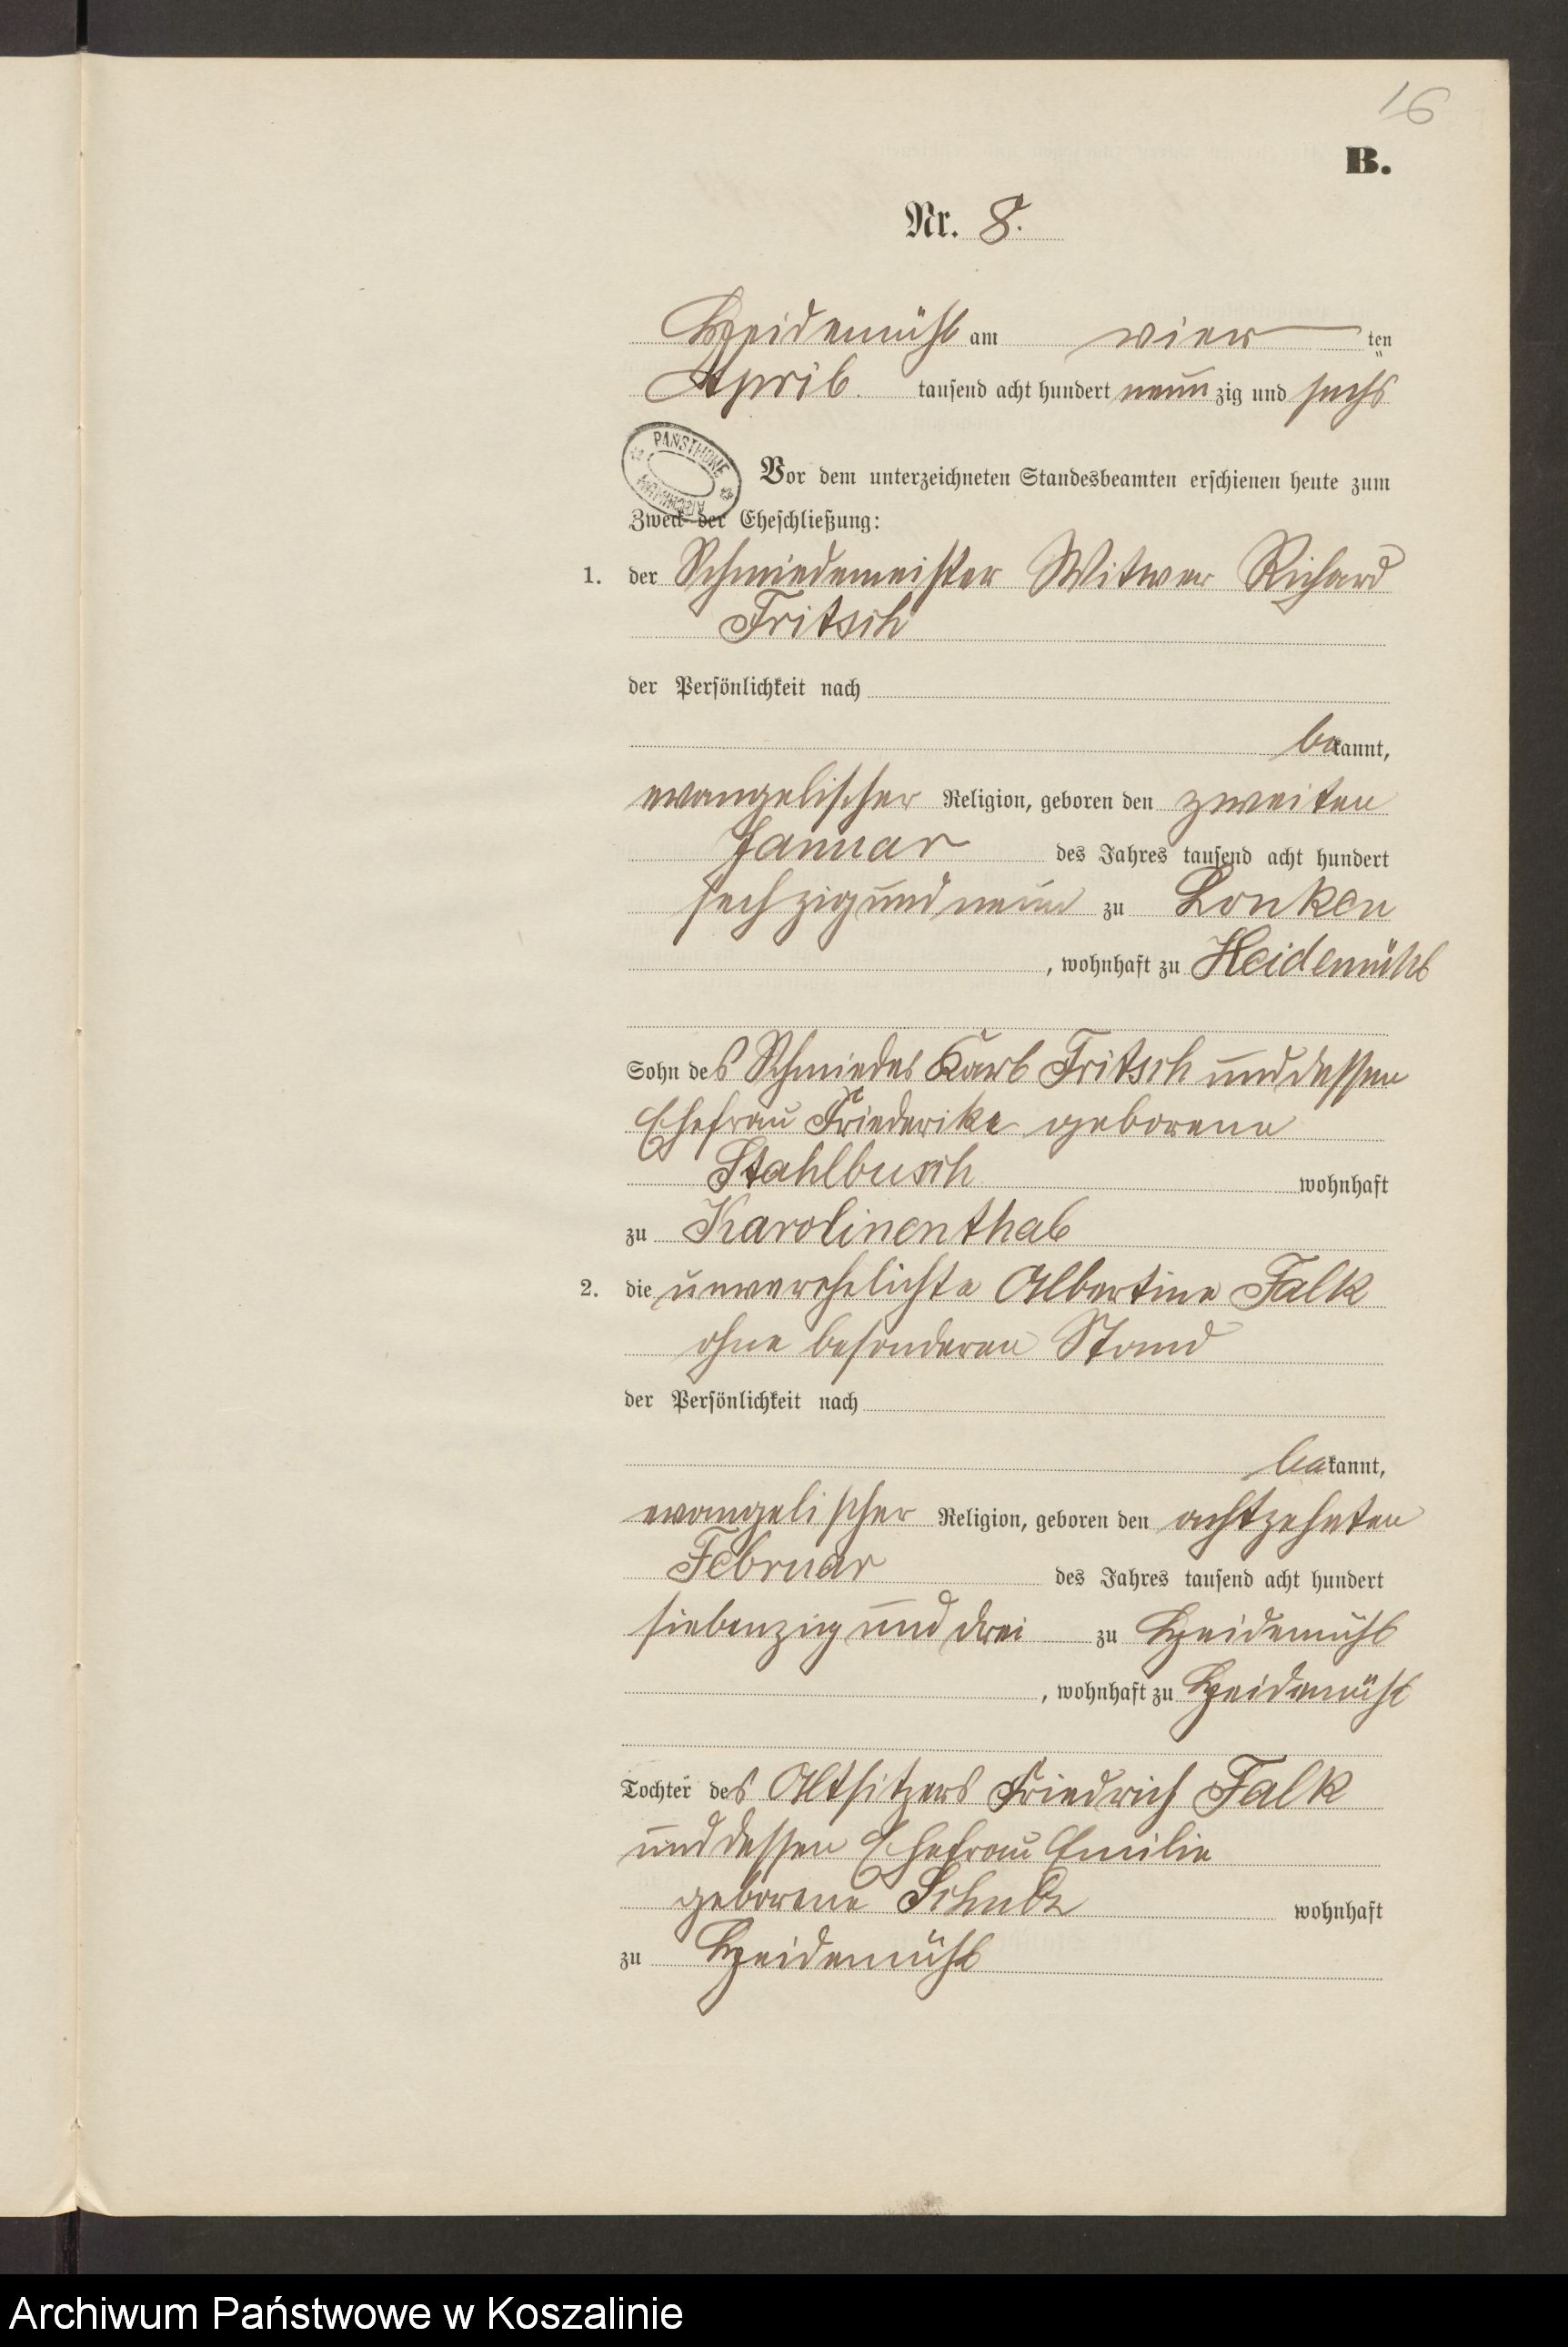 16
B.
Nr. 8.
Heidemühl am vier ten
April tausend acht hundert neun zig und sechs
PAŃSTWOWE
ARCHIWUM
Vor dem unterzeichneten Standesbeamten erschienen heute zum
Zweck der Eheschließung:
1. der Schmiedemeister Witwer Richard
Fritsch
der Persönlichkeit nach
bekannt,
evangelischer Religion, geboren den zweiten
Januar des Jahres tausend acht hundert
sechzig und neun zu Lonken
, wohnhaft zu Heidemühl
Sohn des Schmiedes Karl Fritsch und dessen
Ehefrau Friederike geborene
Stahlbusch wohnhaft
zu Karolinenthal
2. die unverehelichte Albertine Falk
ohne besonderen Stand
der Persönlichkeit nach
bekannt,
evangelischer Religion, geboren den achtzehnten
Februar des Jahres tausend acht hundert
siebenzig und drei zu Heidemühl
, wohnhaft zu Heidemühl
Tochter des Altsitzers Friedrich Falk
und dessen Ehefrau Emilie
geborene Schulz wohnhaft
zu Heidemühl
Archiwum Państwowe w Koszalinie